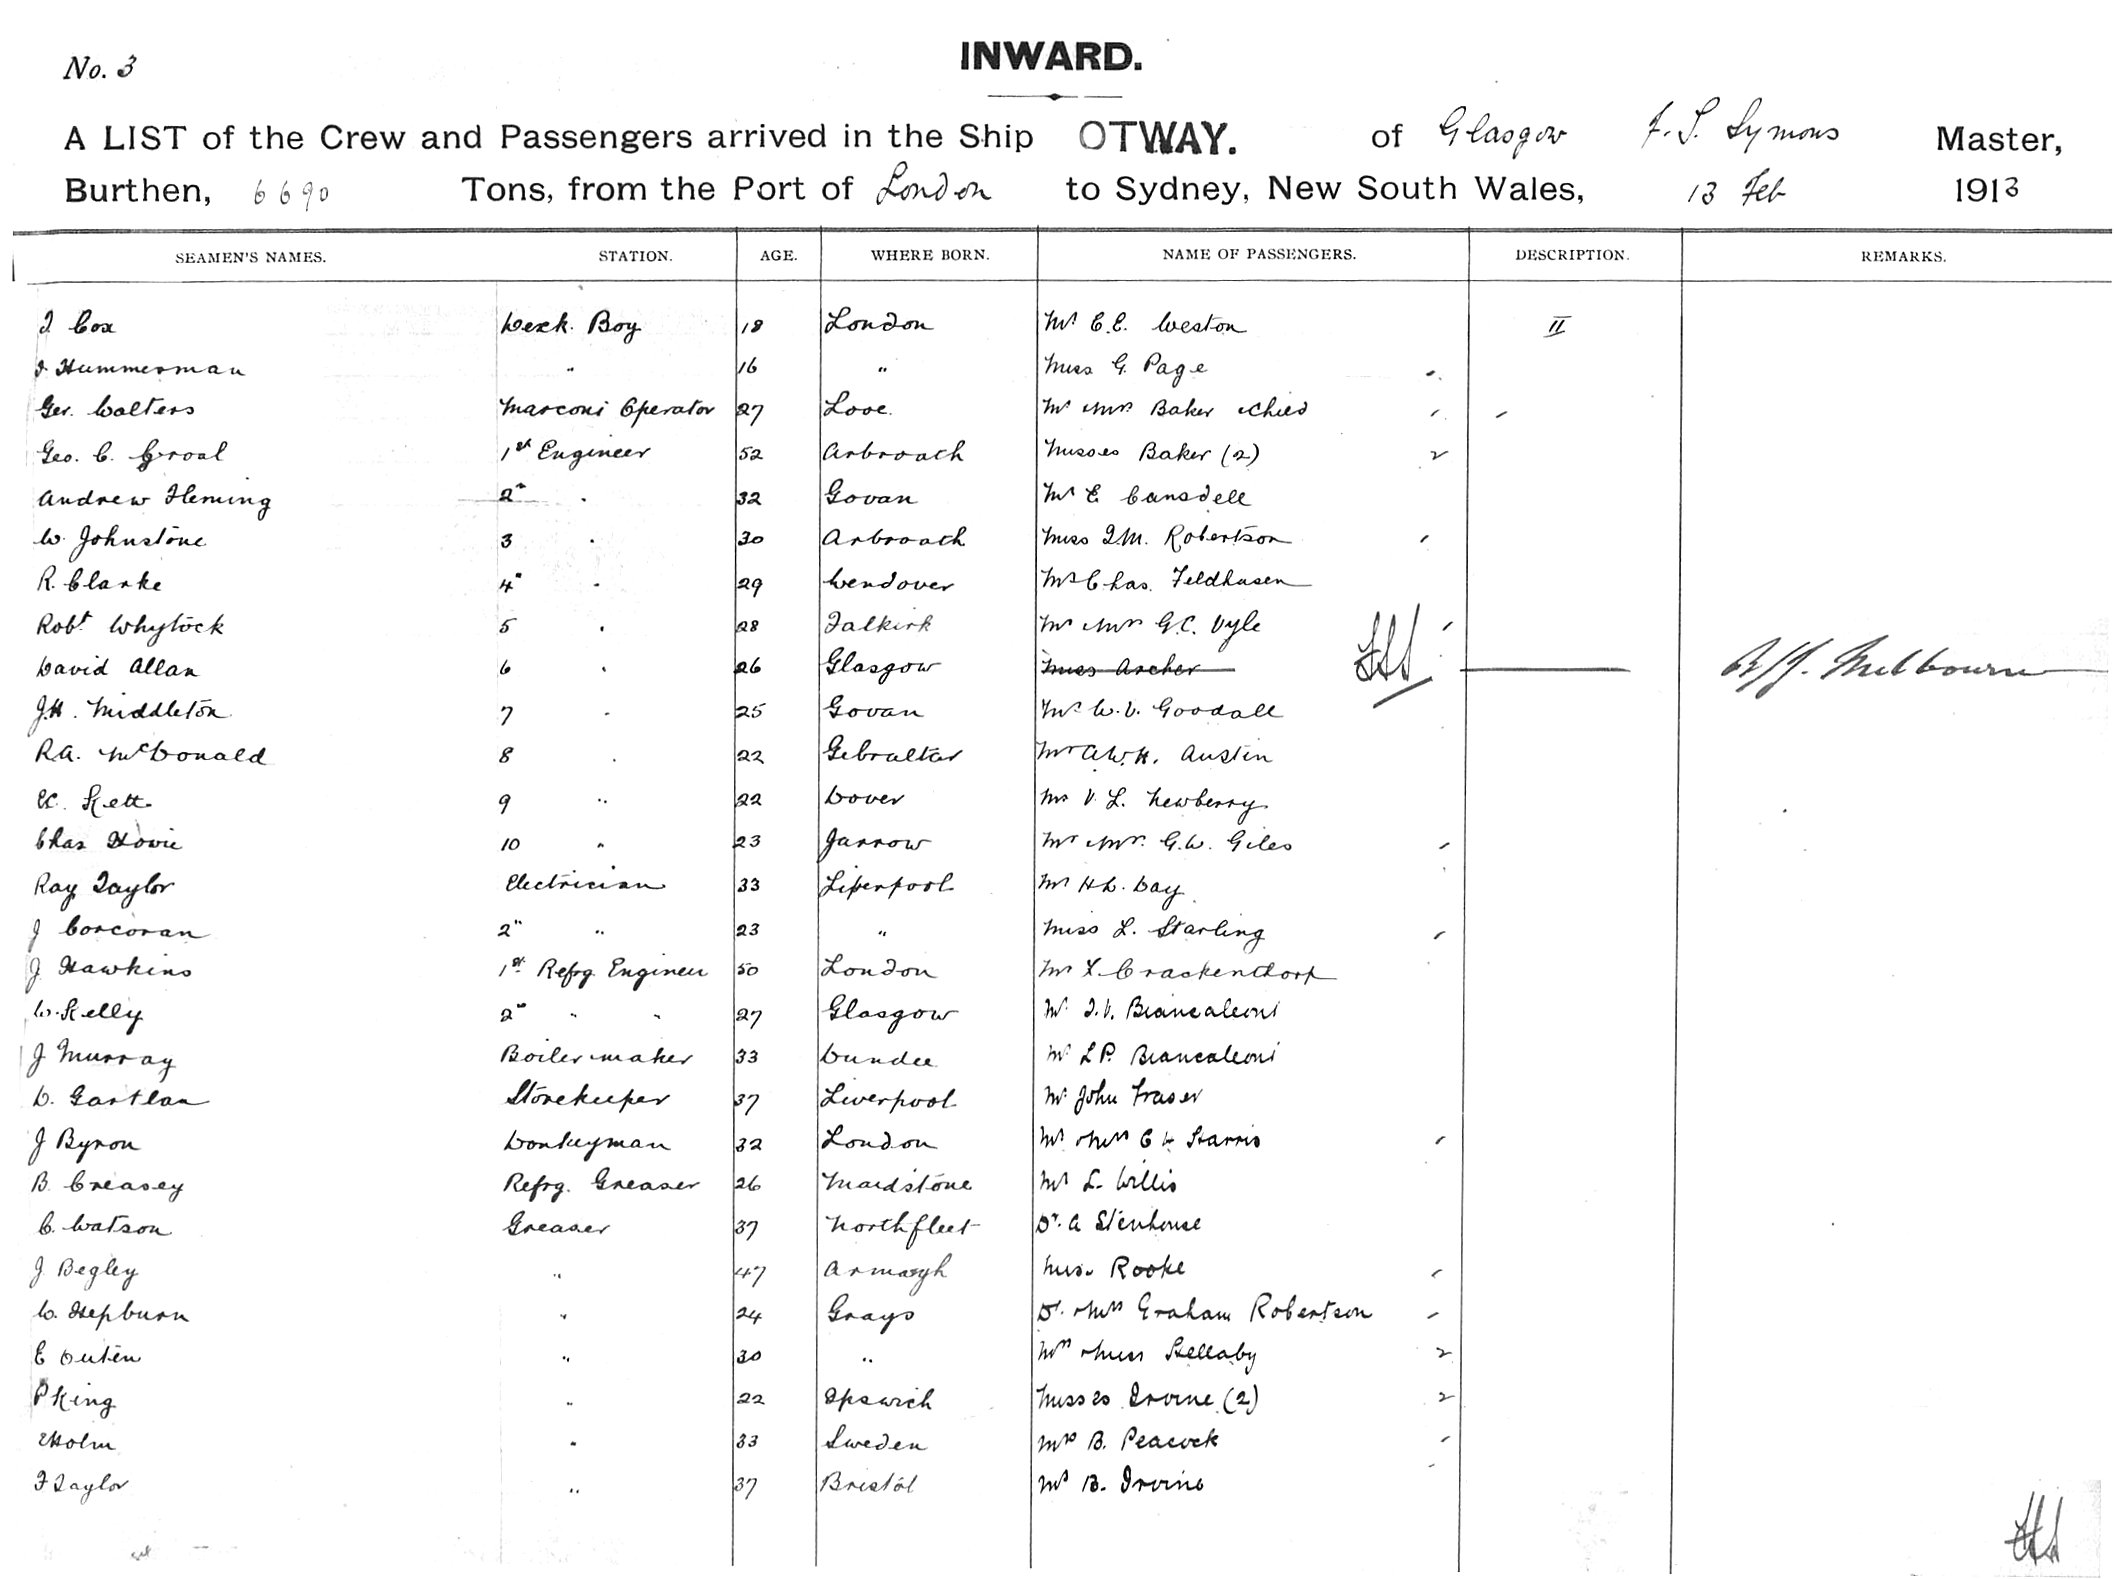 No. 3
INWARD.
A LIST of the Crew and Passengers arrived in the Ship OTWAY. of Glasgow F. S. Symons Master,
Burthen, 6690 Tons, from the Port of London to Sydney, New South Wales, 13 Feb 1913
SEAMEN'S NAMES. STATION. AGE. WHERE BORN. NAME OF PASSENGERS. DESCRIPTION. REMARKS.
J Cox Deck Boy 18 London Mr E.E. Weston II
J Hummerman " 16 " Miss G. Page
Ger. Walters Marconi Operator 27 Looe. Mr & Mrs Baker & Child
Geo. C. Groal 1st Engineer 52 Arbroath Misses Baker (2) 2
Andrew Fleming 2" " 32 Govan Mr E Cansdell
W. Johnstone 3 " 30 Arbroath Miss I.M. Robertson
R. Clarke 4" " 29 Wendover Mr Chas. Feldhusen
Robt Whylock 5 " 28 Falkirk Mr & Mrs G.C. Vyle
David Allan 6 " 26 Glasgow Miss Archer Melbourne
J.H. Middleton 7 " 25 Govan Mr W.V. Goodall
R.A. McDonald 8 " 22 Gibraltar Mr A.W.H. Austin
Kett 9 " 22 Dover Mr V. L. Newberry
Chas Howie 10 " 23 Jarrow Mr & Mrs G.W. Giles
Ray Taylor Electrician 33 Liverpool Mr H.D. Day
J Corcoran 2" " 23 " Miss L. Starling
J Hawkins 1st Refrg Engineer 50 London Mr Crackenthorp
W. Kelly 2" " " 27 Glasgow Mr J.V. Biancaleoni
J Murray Boiler maker 33 Dundee Mr L P. Biancaleoni
D. Gartlan Storekeeper 37 Liverpool Mr John Fraser
J Byron Donkeyman 32 London Mr & Mrs C H Harris
B. Creasey Refrg. Greaser 26 Maidstone Mr L. Willis
C. Watson Greaser 37 Northfleet Dr. A Stenhouse
J. Begley " 47 Armagh Miss Rooke
W. Hepburn " 24 Grays Dr. & Mrs Graham Robertson
E Outen " 30 " Mrs & Miss Hellaby 2
P King " 22 Ipswich Misses Irvine (2) 2
Holm " 33 Sweden Mrs B. Peacock
F Taylor " 37 Bristol Mr B. Irvine